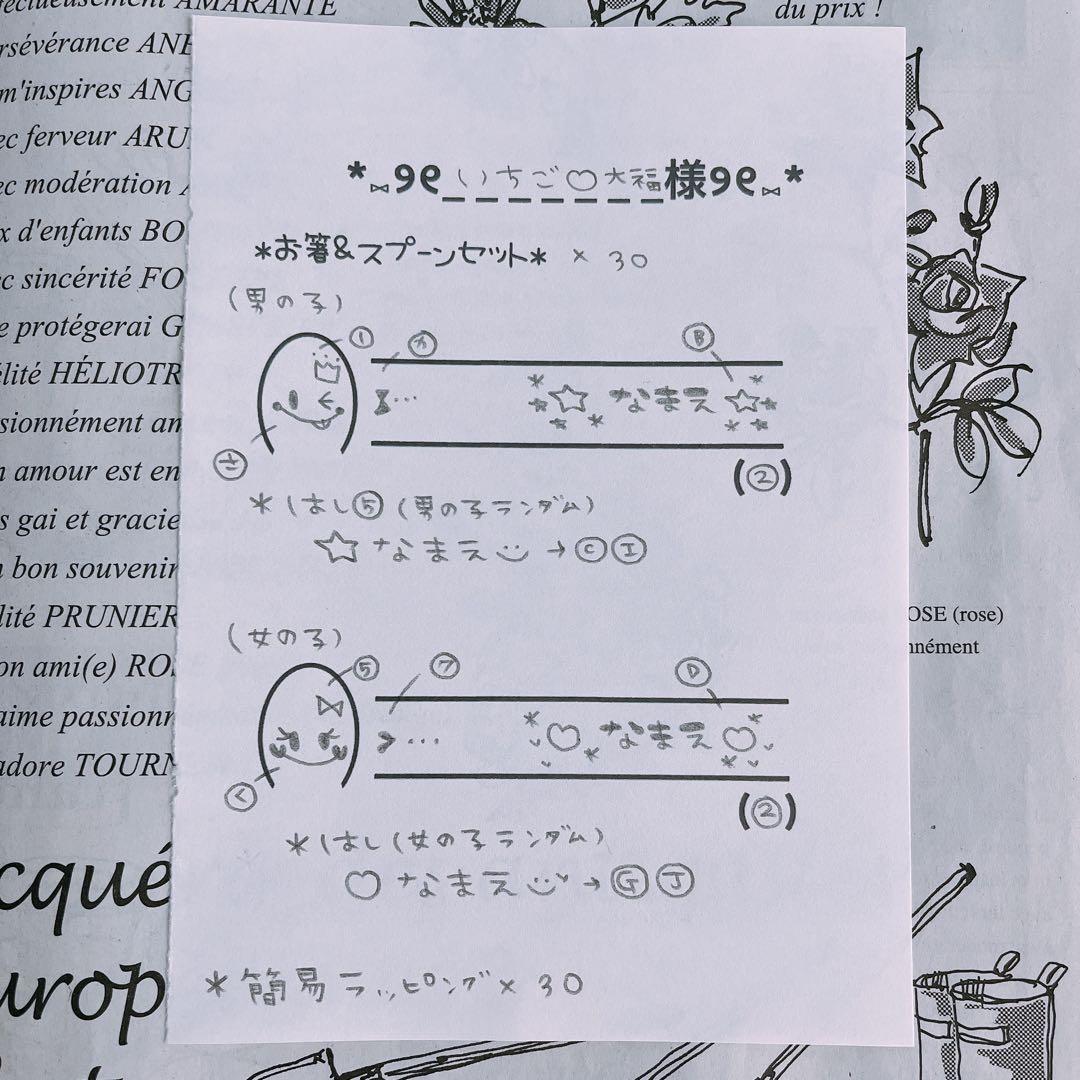 *⑅୨୧いちご♡大福様୨୧⑅*
*お箸&スプーンセット* × 30
(男の子)
① ㋕ Ⓑ
… ☆ なまえ ☆
㋚ (②)
*はし⑤(男の子ランダム)
☆なまえ → Ⓒ Ⓘ
(女の子)
⑤ ⑦ Ⓓ
… ♡ なまえ ♡
(②)
*はし(女の子ランダム)
♡なまえ → Ⓖ Ⓙ
*簡易ラッピング× 30
rectueusement AMARANTE
ersévérance ANE
m'inspires ANG
ec ferveur ARU
ec modération A
x d'enfants BO
ec sincérité FO
e protégerai G
élité HÉLIOTR
ssionnément am
n amour est en
s gai et gracie
n bon souvenir
lité PRUNIER
on ami(e) ROS
aime passionn
adore TOURN
cqué
urop
du prix !
OSE (rose)
nnément